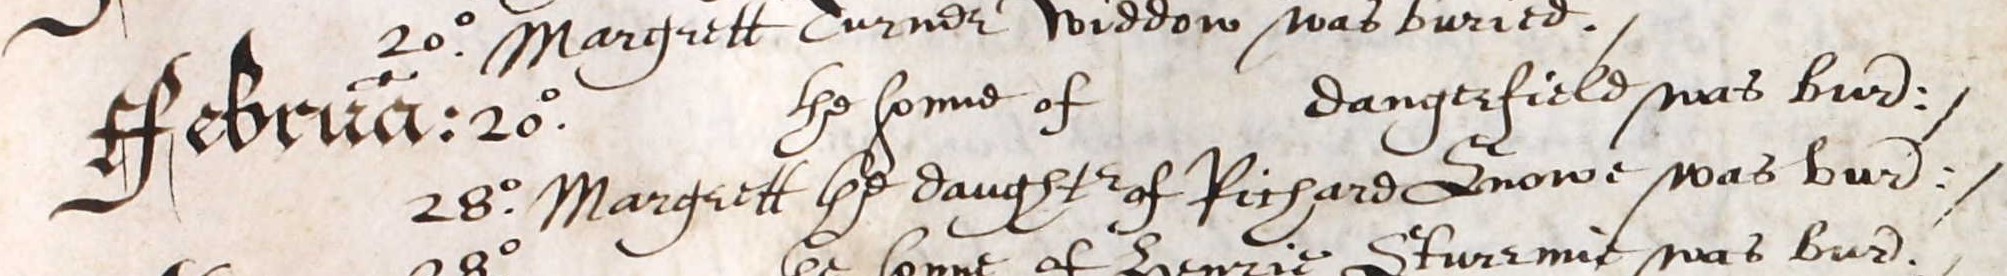 20o. Margrett Turner widdow was buried.
ffebrua: 20o. the sonne of dangerfield was burd:
28o. Margrett the daughter of Richard Snowe was burd:
28o the sonne of Henrie Sturmie was burd.